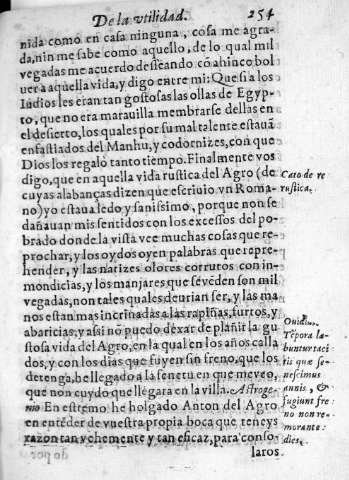 De la vtilidad. 254
nida como en casa ninguna, cosa me agra-
da, nin me sabe como aquello, de lo qual mil
vegadas me acuerdo desseando cõ ahinco bol
uer a aquella vida, y digo entre mi: Que si a los
Iudios les eran tan gostosas las ollas de Egyp-
to, que no era marauilla membrarse dellas en
el desierto, los quales por su mal talente estauã
enfastiados del Manhu, y codornizes, con que
Dios los regalò tanto tiempo. Finalmente vos
digo, que en aquella vida rustica del Agro (de
cuyas alabanças dizen que escriuio vn Roma-
no) yo estaua ledo y sanissimo, porque non se
dañauan mis sentidos con los excessos del po-
brado donde la vista vee muchas cosas que re-
prochar, y los oydos oyen palabras que repre-
hender, y las narizes olores corrutos con in-
mondicias, y los manjares que se vèden son mil
vegadas, non tales quales deurian ser, y las ma
nos estan mas incrinadas a las rapiñas, furtos, y
abaricias, y assi nõ puedo dexar de plañir la gu
stosa vida del Agro, en la qual en los años calla
dos, y con los dias que fuyen sin freno, que los
detenga, he llegado a la senetu en que me veo,
que non cuydo que llegara en la villa. Astroge-
nio En estremo he holgado Anton del Agro
en entẽder de vuestra propia boca que teneys
razon tan vehemente y tan eficaz, para conso-
laros.
Cato de re
rustica.
Ouidius.
Tẽpora la-
buntur taci
tis que se-
nescimus
annis, &
fugiunt fre
no non re-
morante
dies.